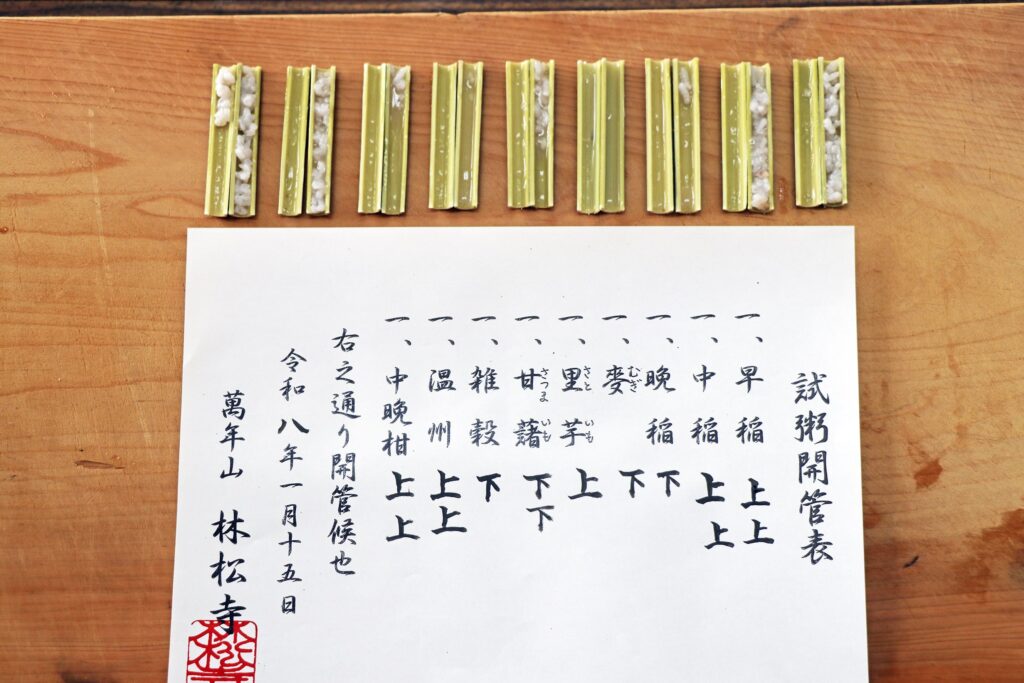 試粥開管表
一、早稲 上上
一、中稲 上上
一、晩稲 下
一、麦(むぎ) 下
一、里芋(さといも) 上
一、甘藷(さつまいも) 下下
一、雑穀 下
一、温州 上上
一、中晩柑 上上
右之通り開管候也
令和八年一月十五日
萬年山 林松寺